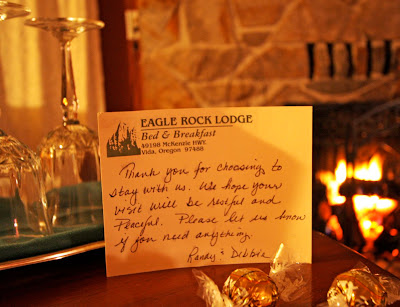 EAGLE ROCK LODGE
Bed & Breakfast
49198 McKenzie HWY.
Vida, Oregon 97488
Thank you for choosing to
stay with us. We hope your
visit will be restful and
Peaceful. Please let us know
if you need anything.
Randy & Debbie